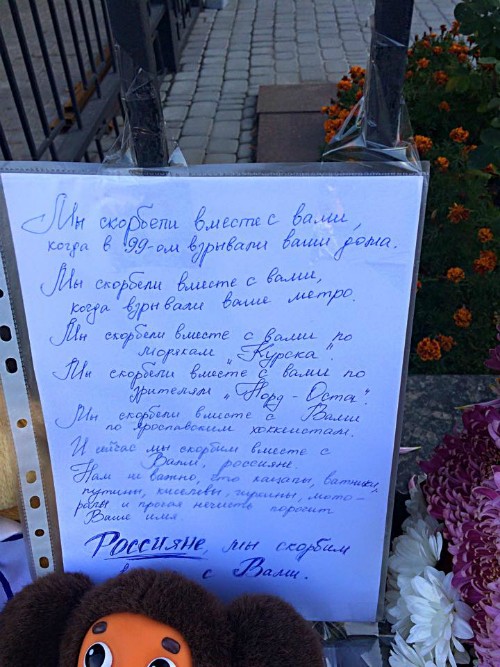 Мы скорбели вместе с вами,
когда в 99-ом взрывали ваши дома.
Мы скорбели вместе с вами,
когда взрывали ваше метро.
Мы скорбели вместе с вами по
морякам „Курска“.
Мы скорбели вместе с вами по
зрителям „Норд-Оста“.
Мы скорбели вместе с Вами
по ярославским хоккеистам.
И сейчас мы скорбим вместе с
Вами, россияне.
Нам не важно, что кацапы, ватники,
путины, киселевы, гиркины, мото-
ролы и прочая нечисть порочит
Ваше имя.
Россияне, мы скорбим
с Вами.